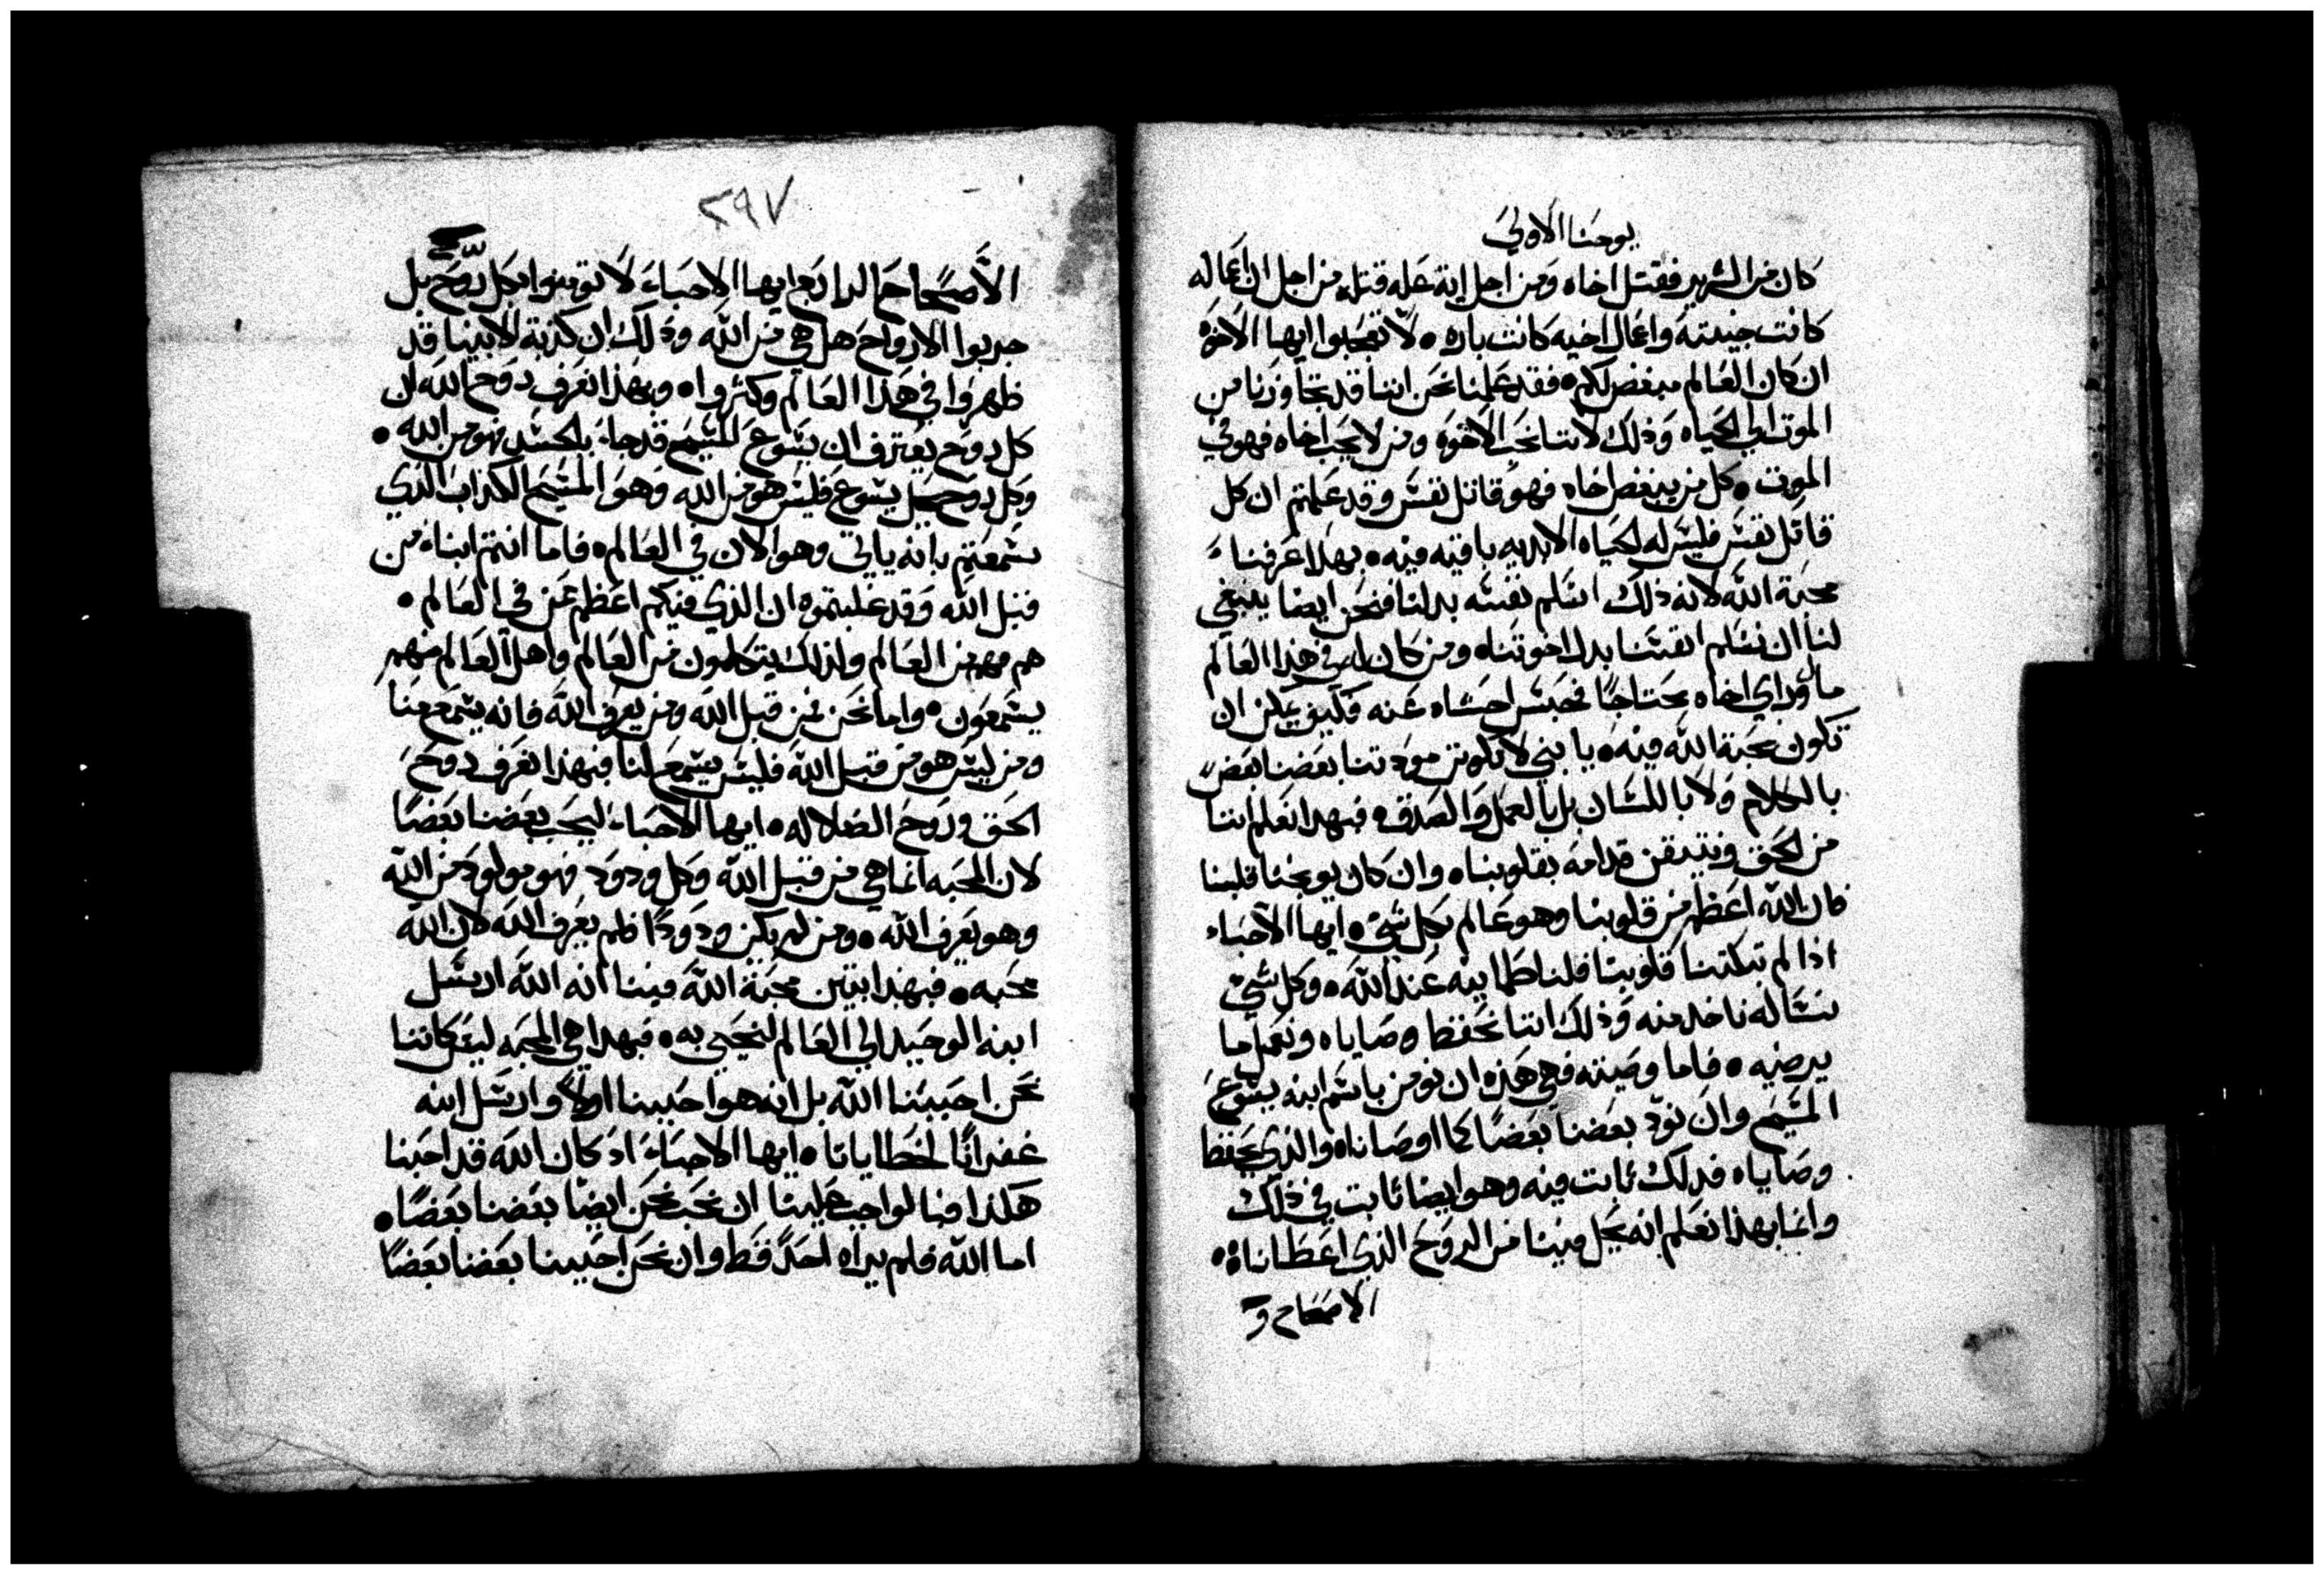 يوحنا الاولي
كان من الشرير فقتل اخاه ومن اجل اية عله قتله من اجل ان اعماله
كانت خبيثه واعمال اخيه كانت باره • لا تعجبوا ايها الاخوه
ان كان العالم مبغض لكم • فقد علمنا نحن اننا قد تجاوزنا من
الموت الي الحياه وذلك لاننا نحب الاخوه ومن لا يحب اخاه فهو في
الموت • كل من يبغض اخاه فهو قاتل نفس وقد علمتم ان كل
قاتل نفس فليس له الحياه الابديه باقيه فيه • بهذا عرفنا
محبة الله لانه ذلك اسلم نفسه بدلنا فنحن ايضا ينبغي
لنا ان نسلم انفسنا بدل اخوتنا • ومن كان له في هذا العالم
مال وراي اخاه محتاجًا فحبس احشاه عنه فكيف يمكن ان
تكون محبة الله فيه • يا بني لا تكونن مودتنا بعضنا بعض
بالكلام ولا باللسان بل بالعمل والصدق • فبهدا نعلم اننا
من الحق ونتيقن قدامه بقلوبنا • وان كان يوبخنا قلبنا
فان الله اعظم من قلوبنا وهو عالم بكل شي • ايها الاحباء
اذا لم تبكتنا قلوبنا فلنا طمانينه عند الله • وكل شي
نساله ناخد منه وذلك اننا نحفظ وصاياه ونعمل ما
يرضيه • فاما وصيته فهي هذه ان نومن باسم ابنه يسوع
المسيح وان نود بعضنا بعضًا كما اوصانا • والذي يحفظ
وصاياه فدلك ثابت فيه وهو ايضا ثابت في ذلك
وانما بهذا نعلم انه يحل فينا من الروح الذي اعطاناه •
الاصحاح و
٢٩٧
الأصحاح الرابع ايها الاحباء لا تومنوا بكل روح بل
جربوا الارواح هل هي من الله وذلك ان كذبة الانبيا قد
ظهروا في هذا العالم وكثروا • وبهذا نعرف روح الله ان
كل روح يعترف ان يسوع المسيح قد جاء بالجسد فهو من الله •
وكل روح يسوع فليس هو من الله وهو المسيح الكداب الذي
سمعتم بانه ياتي وهو الان في العالم • فاما انتم ابناء من
قبل الله وقد غلبتموه ان الذي فيكم اعظم ممن في العالم •
هم من العالم ولذلك يتكلمون من العالم واهل العالم منهم
يسمعون • واما نحن فمن قبل الله ومن يعرف الله فانه يسمع منا
ومن ليس هو من قبل الله فليس يسمع لنا فبهذا نعرف روح
الحق وروح الضلاله • ايها الاحباء ليحب بعضنا بعضًا
لان المحبه انما هي من قبل الله وكل ودود فهو مولود من الله
وهو يعرف الله • ومن لم يكن ودودًا فلم يعرف الله لان الله
محبه • فبهذا تبين محبة الله فينا انه الله ارسل
ابنه الوحيد الي العالم لنحيي به • فبهدا هي المحبه ليس كاننا
نحن احببنا الله بل انه هو احبنا اولًا وارسل ابنه
غفرانًا لخطايانا • ايها الاحباء اد كان الله قد احبنا
هكذا فمالواجب علينا ان نحب نحن ايضًا بعضنا بعضًا •
اما الله فلم يراه احدًا قط وان نحن احببنا بعضنا بعضًا